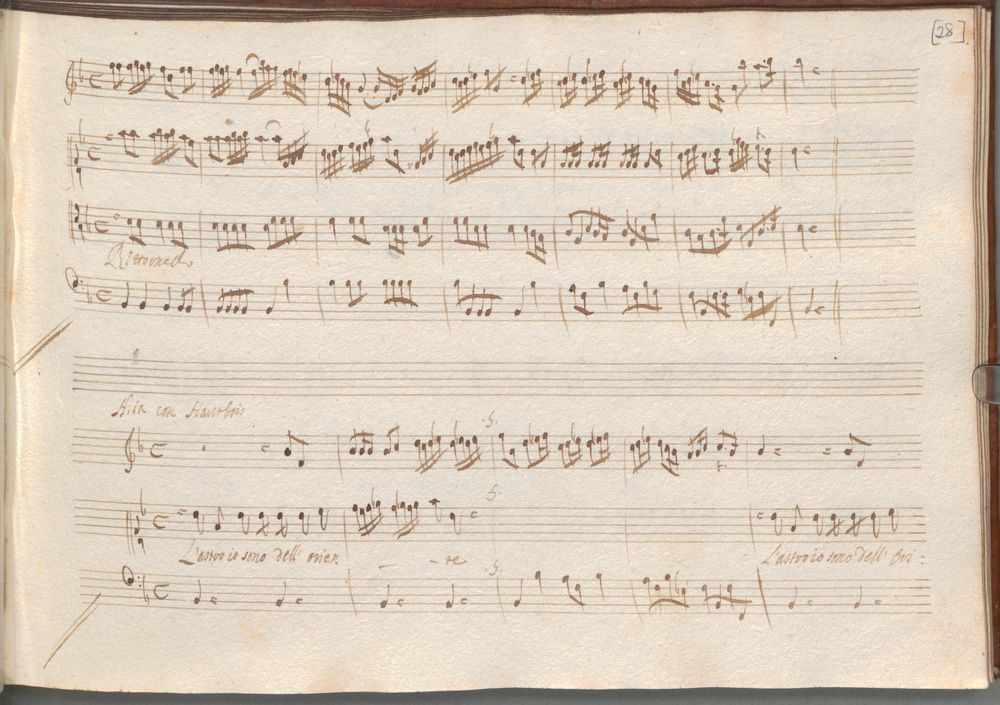 [28]
Ritornello
Aria con Hautbois
L'astro io sono dell' orien - - te L'astro io sono dell' Ori: